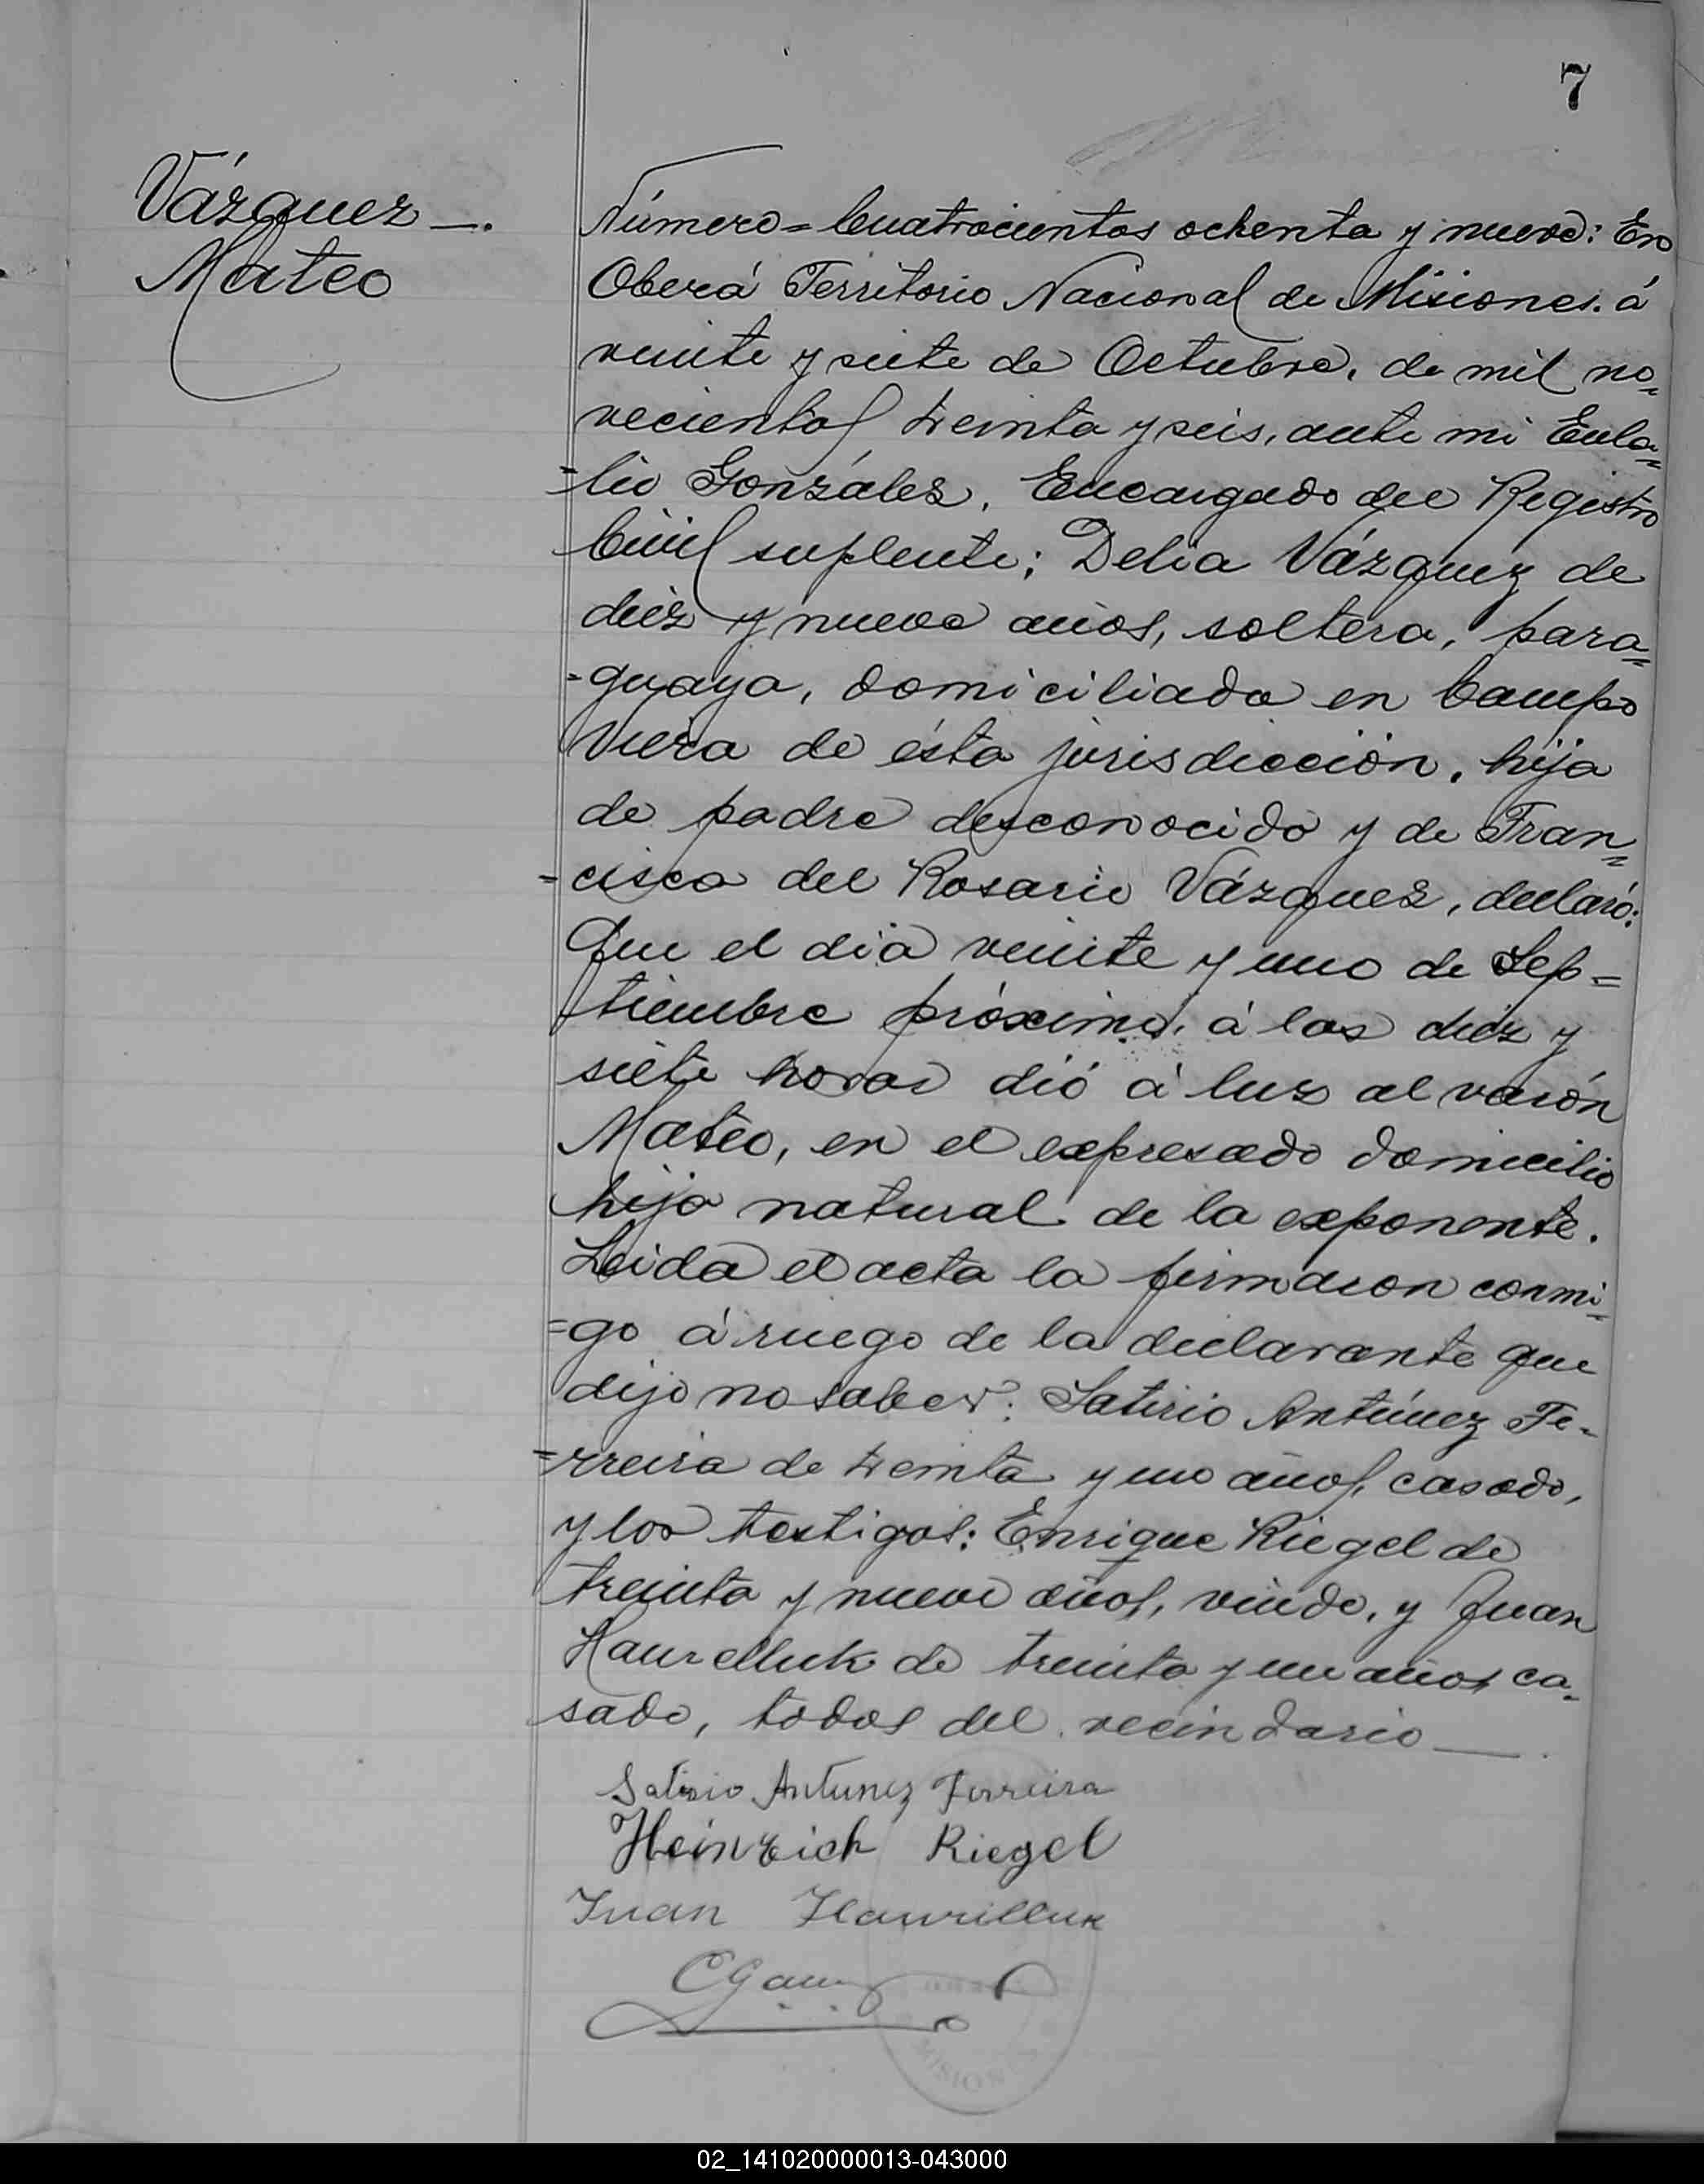 7
Vázquez—.
Mateo
Número=Cuatrocientos ochenta y nueve: En
Oberá Territorio Nacional de Misiones. á
veinte y siete de Octubre, de mil no=
vecientos treinta y seis, ante mi Eula=
=lio Gonzáles, Encargado del Registro
Civil suplente; Delia Vázquez de
diéz y nueve años, soltera, para=
=guaya, domiciliada en Campo
Viera de ésta jurisdicción, hija
de padre desconocido y de Fran=
=cisca del Rosario Vázquez, declaró:
Que el dia veinte y uno de Sep=
tiembre próximo, á las diez y
siete horas dió á luz al varón
Mateo, en el expresado domicilio
hijo natural de la exponente.
Leida el acta la firmaron conmi=
=go á ruego de la declarante que
dijo no saber: Satirio Antúnez Fe=
=rreira de treinta y uno años, casado,
y los testigos: Enrique Riegel de
treinta y nueve años, viudo, y Juan
de treinta y un años ca=
sado, todos del vecindario—.
Satirio Antunez Ferreira
Heinrich Riegel
Juan
MISIONES
02_141020000013-043000